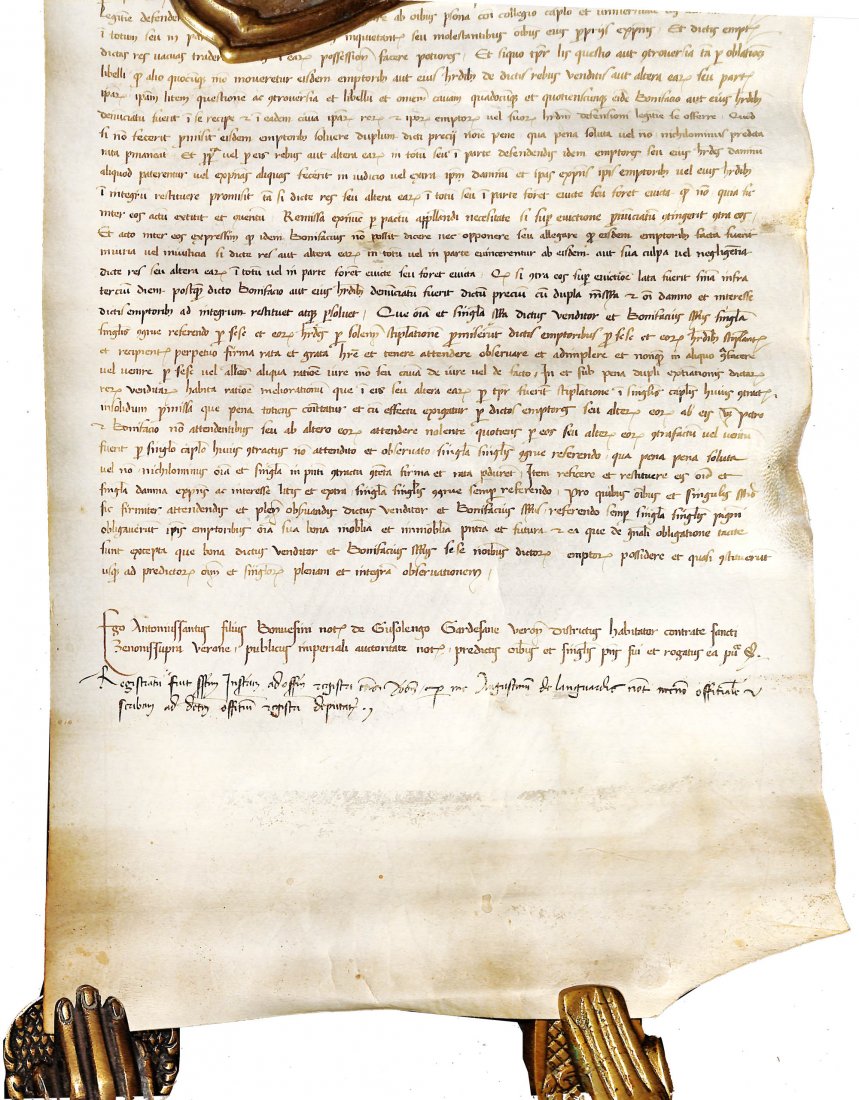 legitie defendere ab oibus psona coi collegio caplo et universitate
i totum seu in parte inquietantes seu molestantibus oibus eius proprijs expensis . Et dictis empt
dictas res vacuas tradere possessione facere potiores . Et siquo tpr lis questio aut controversia
libelli q alio quocunq mo moveretur eisdem emptoribus aut eius hrdibus de dictis rebus venditis aut altera earum seu parte
ipar ipam litem questione ac controversia et libellu et omnem causam quadocunq et quotiescunq eide Bonifacio aut eius hrdibus
denuciatu fuerit i se recipe & i eidem causa ipar rer & ipor emptor vel suor hrdm defensioni legitie se offerre . Quod
si no fecerit promisit eisdem emptoribus solvere duplum dicti precij noie pene qua pena soluta vel no nichilominus predata
rata pmaneat . Et pp vel p eis rebus aut altera ear in totu seu i parte defendendis idem emptores seu eius hrdes damnu
aliquod paterentur vel expensas aliquas fecerit in iudicio vel extra ipm damnu et ipas expensas ipis emptoribus vel eius hrdibus
i integru restituere promisit ta si dicte res seu altera ear i totu seu i parte foret evicte seu foret evicta q no quia sic
inter eos actu extitit et conventu . Remissa eximie p pactu appellandi necesitate si sup evictione pnuciatu contingerit contra eos .
Et acto inter eos expressim q idem Bonifacius no possit dicere nec opponere seu allegare q eisdem emptoribus facta fuerit
iniuria vel iniusticia si dicte res aut altera ear in totu vel in parte evincerentur ab eisdem aut sua culpa vel negligentia
dicte res seu altera ear i totu vel in parte foret evicte seu foret evicta . Q si contra eos sup evictioe lata fuerit sentia infra
tercium diem postq dicto Bonifacio aut eius hrdibus denuciatu fuerit dictum precium cum dupla & oi damno et interesse
dictis emptoribus ad integrum restituet atq psoluet . Que oia et singla dictus venditor et Bonifacius singla
singlis congrue referendo p se se et eor hrdes p solem stiplatione promiserut dictis emptoribus p se se et eor hrdibus stiplantes
et recipientes perpetuo firma rata et grata hre et tenere attendere observare et adimplere et nonq in aliquo contrafacere
vel venire p se se vel alios aliqua ratioe iure mo seu causa de iure vel de facto . In et sub pena dupli extimationis dictar
rer venditar habita ratioe meliorationu que i eis seu altera ear p tpr fuerit stiplatione i singlis caplis huius contract
insolidum pmissa que pena totiens comittatur et cu effectu exigatur p dictos emptores seu alter eor ab eis petro
& Bonifacio no attendentibus seu ab altero eor attendere nolente quotiens p eos seu alter eor contrafactu vel ventu
fuerit p singlo caplo huius contractus no attendito et observato singla singlis congrue referendo . qua pena soluta
vel no . nichilominus oia et singla in pnti contractu contenta firma et rata pduret . Item reficere et restituere eis oia et
singla damna expensas ac interesse litis et extra singla singlis congrue semp referendo . Pro quibus oibus et singulis
sic firmiter attendendis et plene observandis dictus venditor et Bonifacius referendo semp singla singlis pigni
obligaverut ipis emptoribus oia sua bona mobilia et immobilia pntia et futura & ea que de gnali obligatione tacite
sunt excepta que bona dictus venditor et Bonifacius se se noibus dictor emptor possidere et quasi constituerut
usq ad predictor oium et singlor plenam et integra observationem .
Ego Antoniussantus filius Bonvesini not de Gusolengo Gardesane veron districtus habitator contrate sancti
Zenonis supra verone , publicus imperiali auctoritate not , predictis oibus et singlis pns fui et rogatus ea pu S .
Registratu fuit sstm Instrm ad offm registri cois veron . p me Augustinu de languardis not offitiale &
scriban ad dctm offitiu registri deputat .,